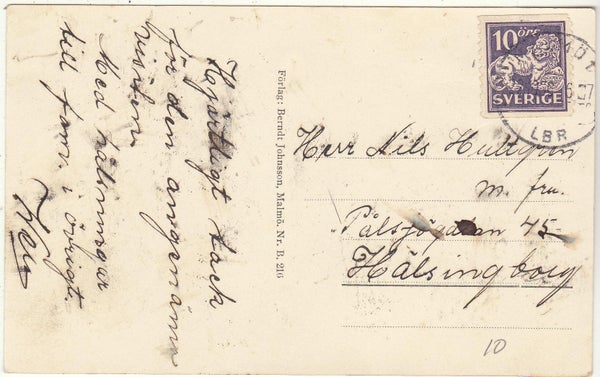 Hjärtligt tack
för den angenäma
visiten.
Med hälsningar
till fam. i övrigt.
Förlag: Berndt Johnsson, Malmö. Nr. B. 216
10 ÖRE
SVERIGE
LBR
Herr Nils Hultgren
m. fru.
Pålsjögatan 45
Hälsingborg
10